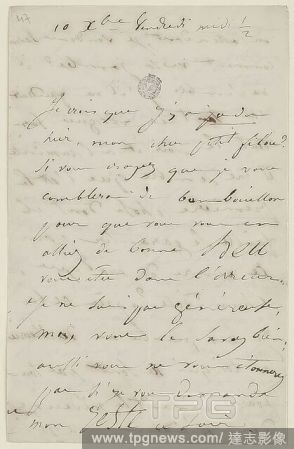 10 Xbre Vendredi midi ½
Je crois que j'y ai
hier, mon cher petit filou?
Si vous croyez que je vous
comblerai de bon bouillon
pour que vous vous en
alliez de bonne heure
vous êtes dans l'erreur.
Je ne suis pas généreuse,
mais vous le savez bien
aussi vous ne vous étonnerez
pas si je vous demande
mon reste ce soir
TPG
www.tpgnews.com / 達志影像